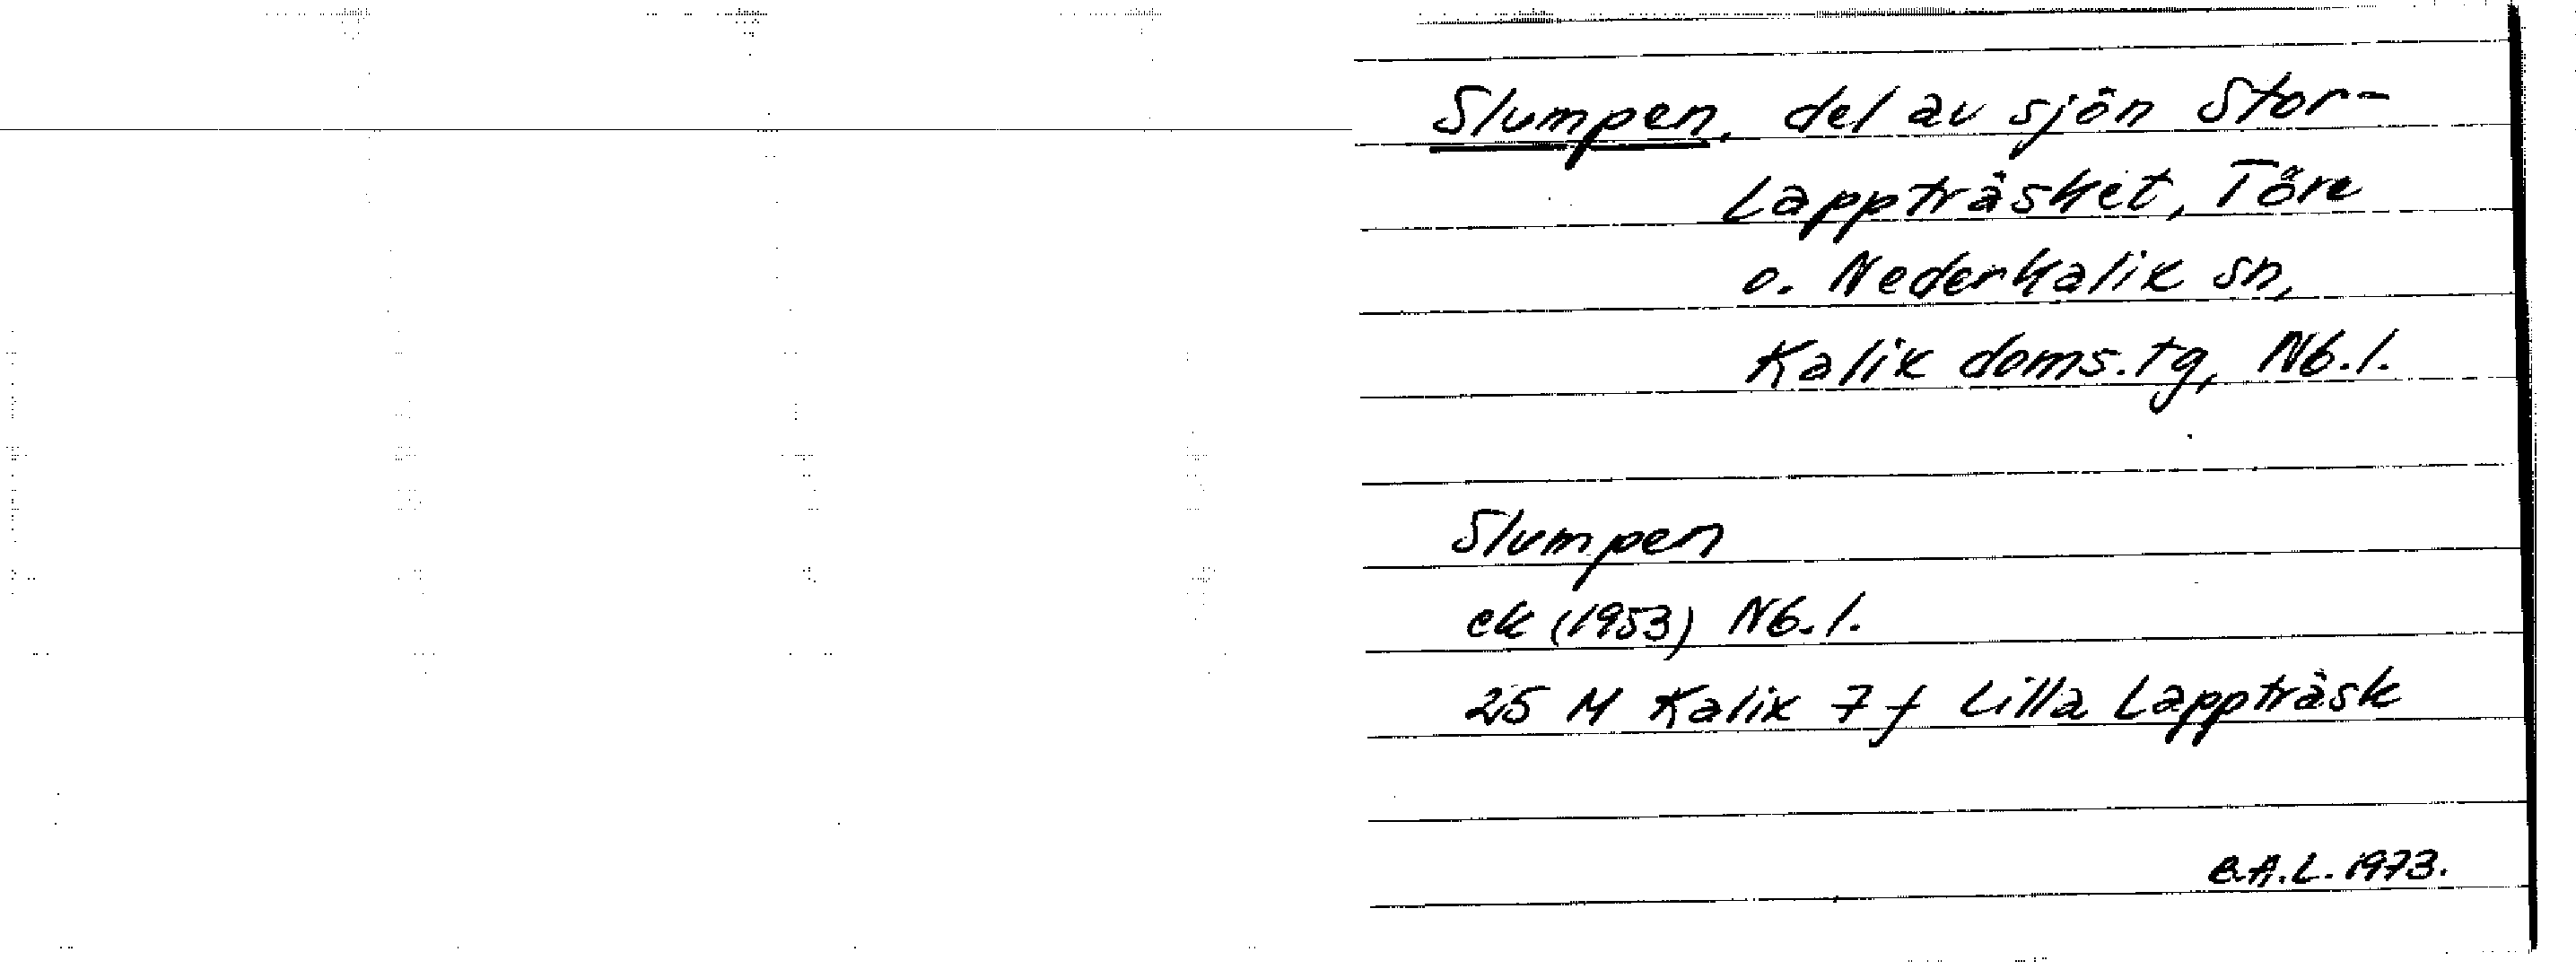 Slumpen, del av sjön Stor-
Lappträsket, Töre
o. Nederkalix sn,
Kalix doms.tg, Nb.l.
Slumpen
ek (1953) Nb.l.
25 M Kalix 7 f Lilla Lappträsk
B.A.L. 1973.